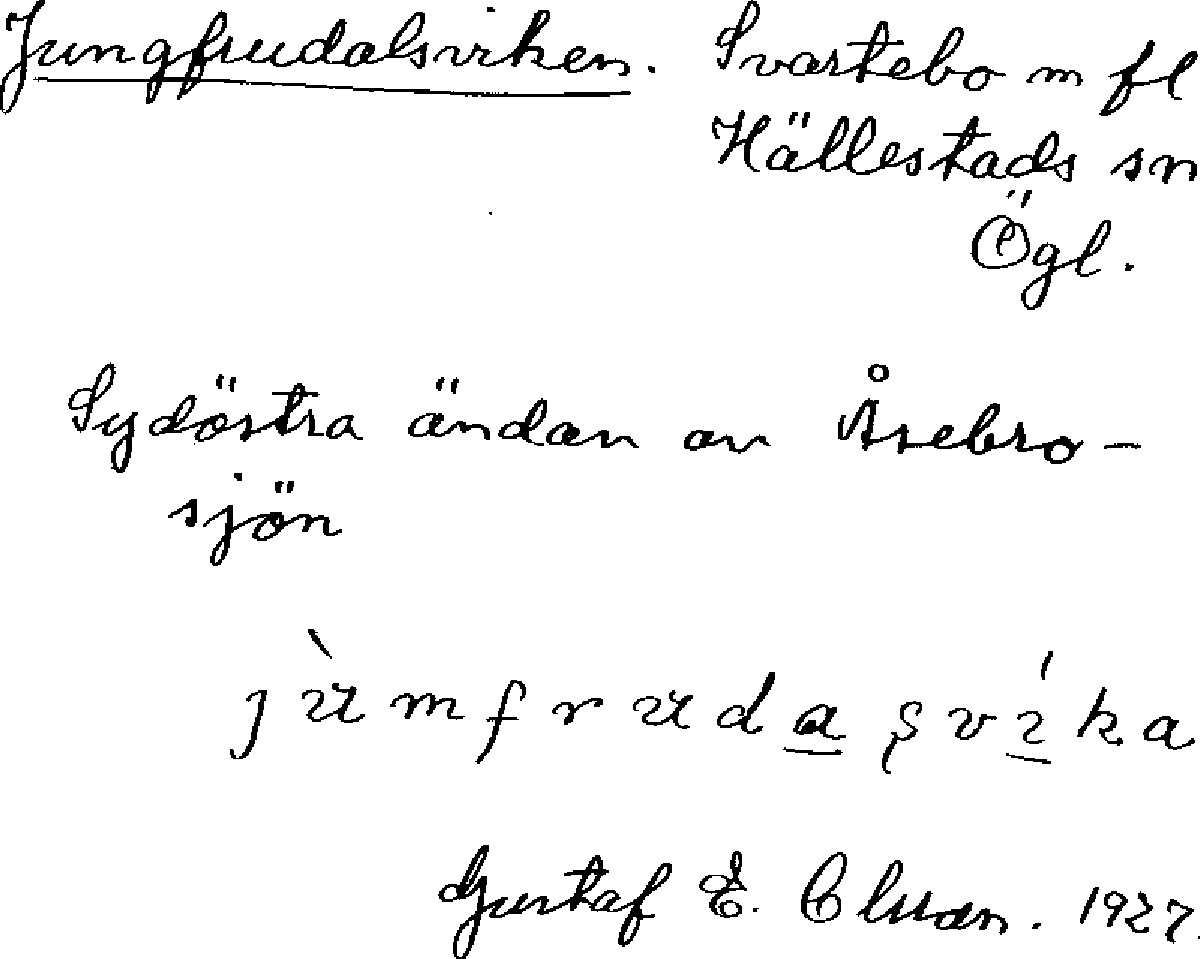 Jungfrudalsviken. Svartebo m fl
Hällestads sn
Ögl.
Sydöstra ändan av Årebro-
sjön
Gustaf E. 1927.